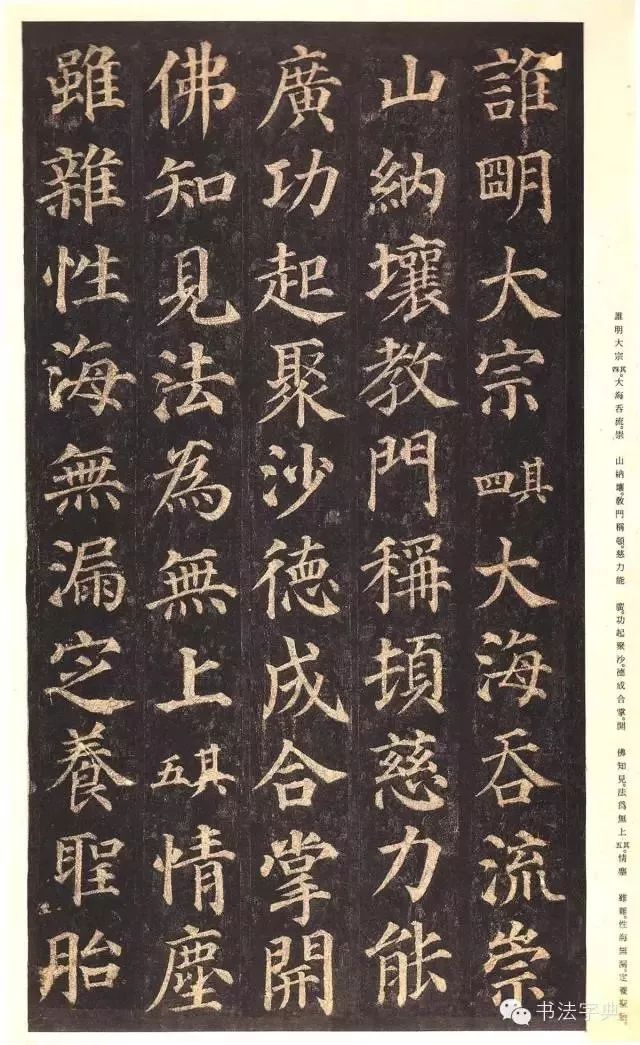 誰明大宗其四大海吞流崇
山納壤教門稱頓慈力能
廣功起聚沙德成合掌開
佛知見法為無上其五情塵
雖雜性海無漏定養聖胎
誰明大宗其四。大海吞流。崇 山納壤。教門稱頓。慈力能 廣。功起聚沙。德成合掌。開 佛知見。法爲無上其五。情塵 雖雜。性海無漏。定養聖胎。
书法字典